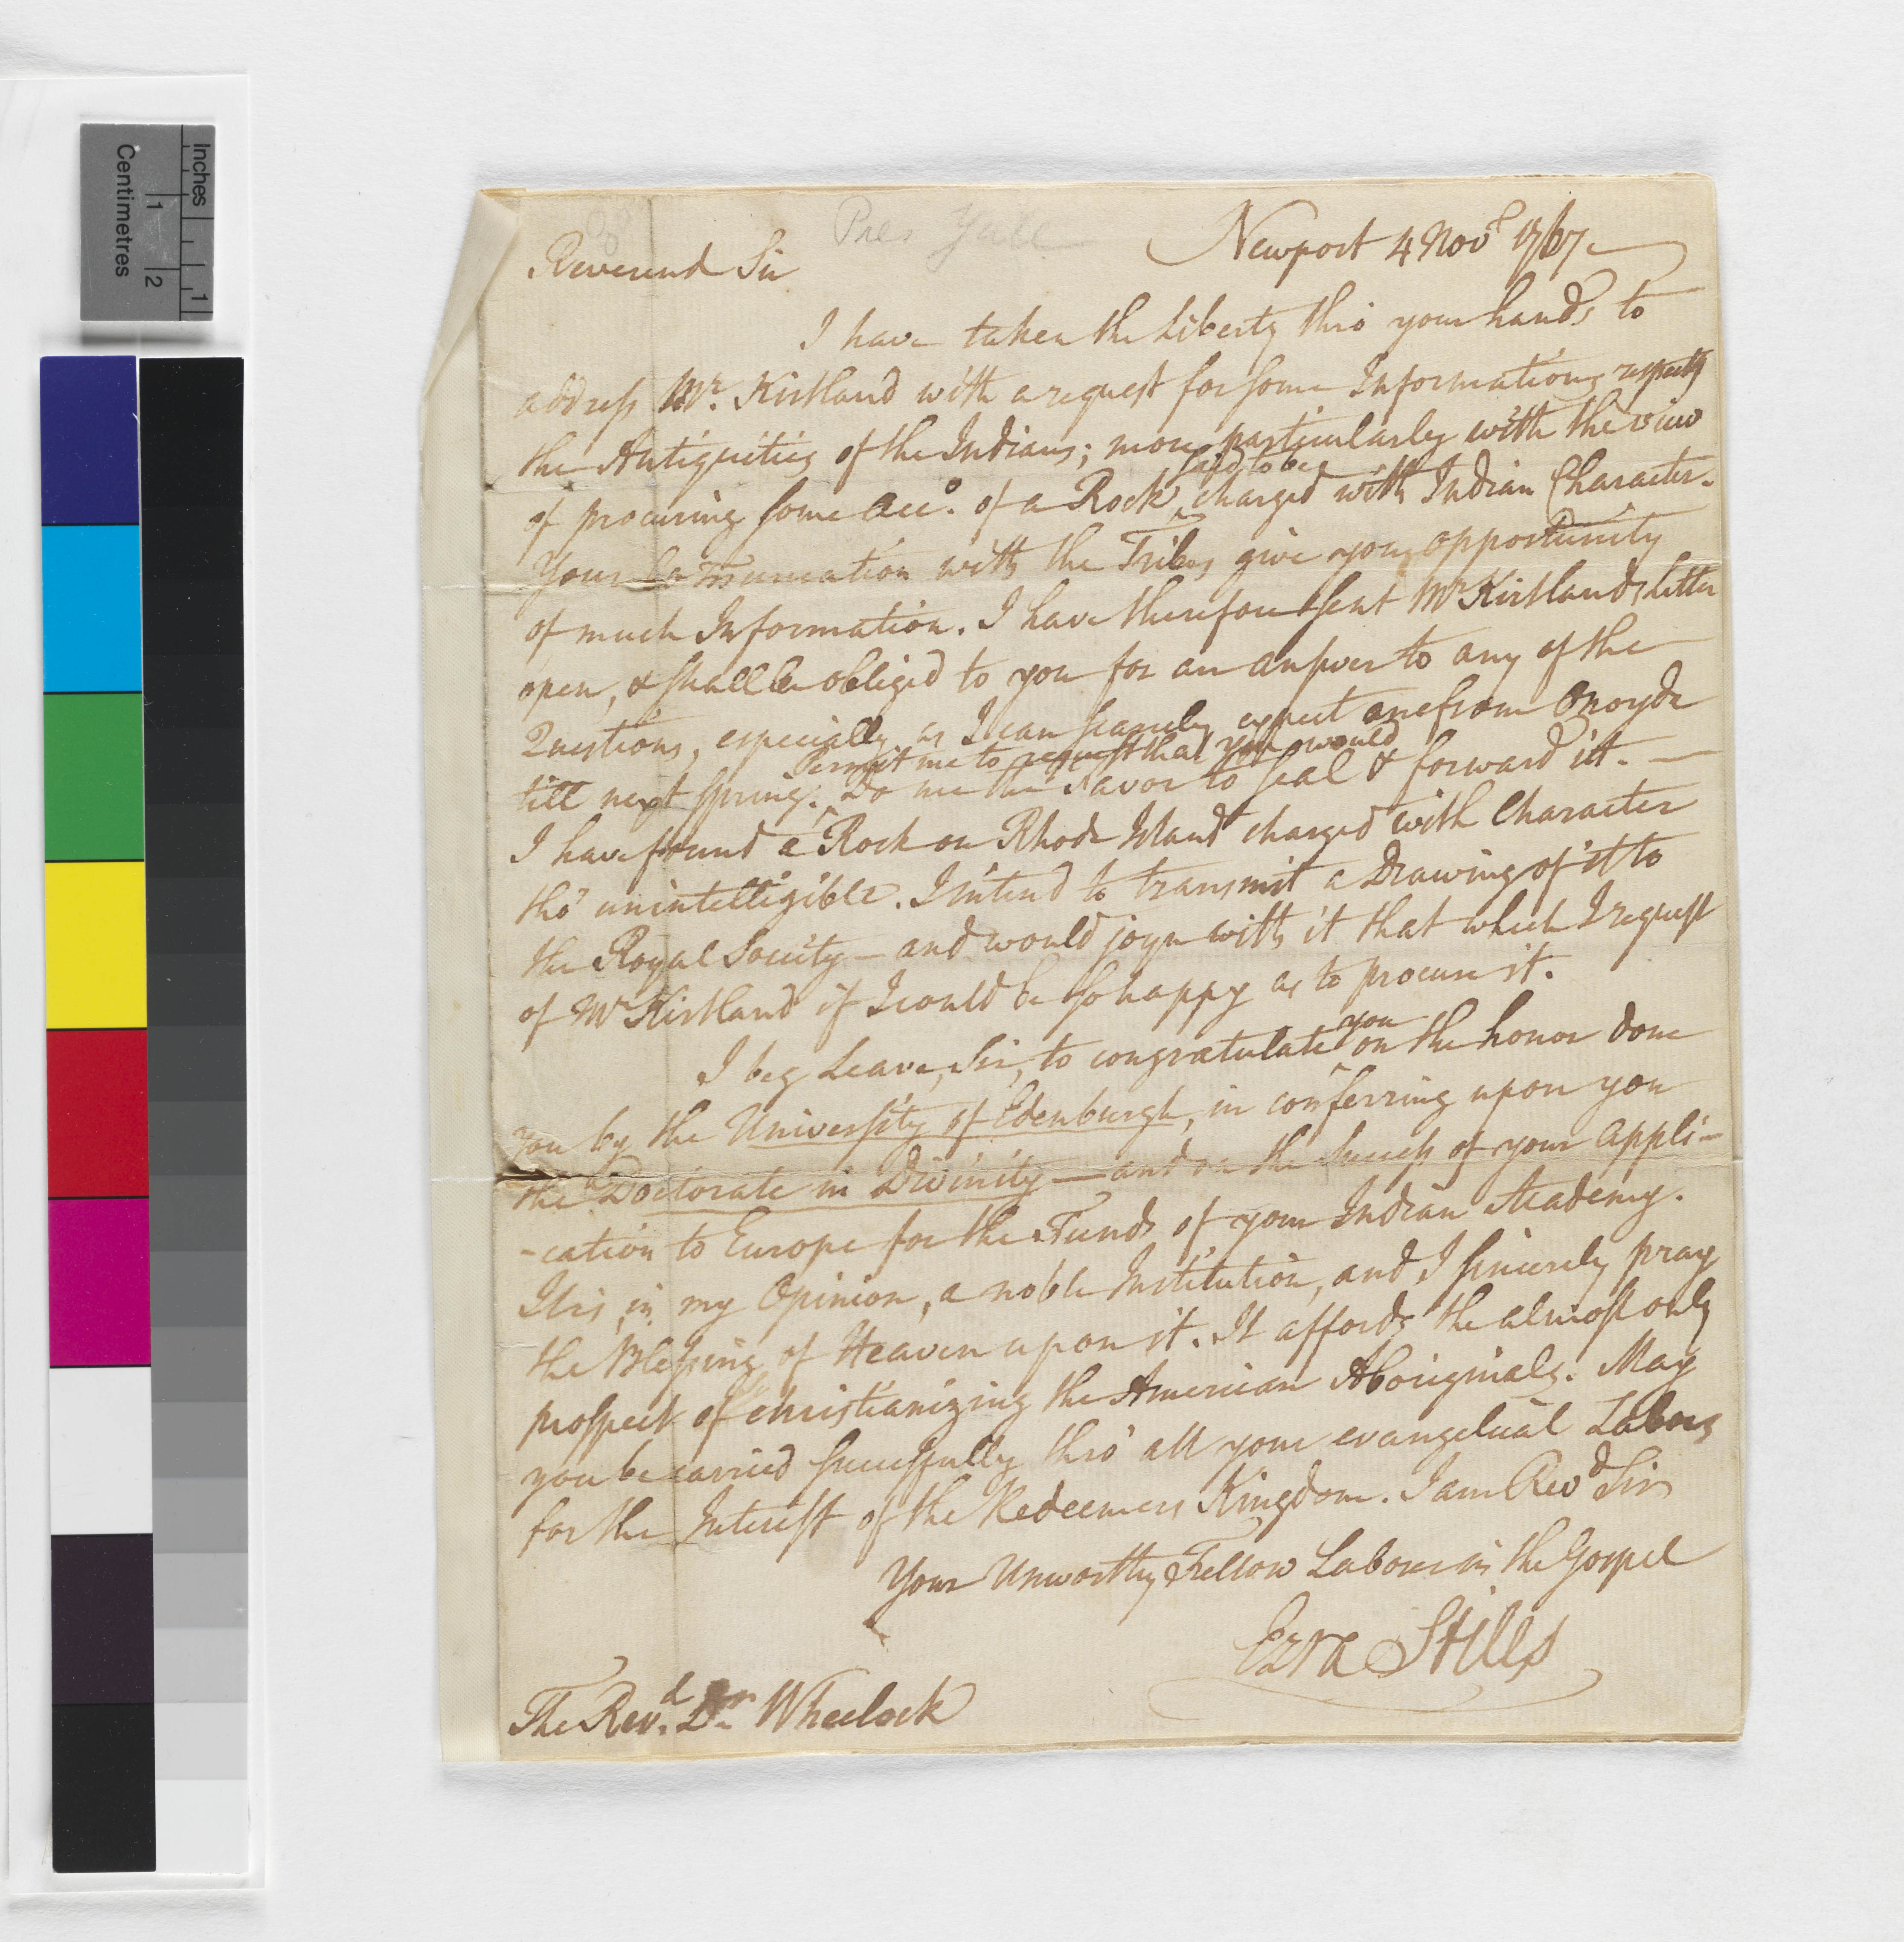 Inches
1
Centimetres
1
2
Pres Yale
Newport 4 Novr 1767.
Reverend Sir
I have taken the Liberty thro' your hands to
address Mr. Kirtland with a request for some Informations respectg
the Antiquities of the Indians; more particularly with the view
said to be
of procuring some Acco. of a Rock ^ charged with Indian Character.
Your Communication with the Tribes give you opportunity
of much Information. I have therefore sent Mr Kirtlands Letter
open, & shall be obliged to you for an answer to any of the
Questions, especially as I can scarcely expect one from Onoyde
Permit me to request that you would
till next spring. ^ Do me the Favor to seal & forward itt. —
I have found a Rock on Rhode Island charged with Character
tho' unintelligible. I intend to transmit a Drawing of it to
the Royal Society — and would joyn with it that which I request
of Mr Kirtland if I could be so happy as to procure it.
you
I beg Leave, Sir, to congratulate on the honor done
you by the University of Edenburgh, in conferring upon you
the Doctorate in Divinity — and on the Success of your Appli-
-cation to Europe for the Funds of your Indian Academy.
It is, in my Opinion, a noble Institution, and I sincerely pray
the Blessing of Heaven upon it. It affords the almost only
prospect of christianizing the American Aboriginals. May
you be carried successfully thro' all your evangelical Labors
for the Interest of the Redeemers Kingdom. I am Revd Sir
Your Unworthy Fellow Laborer in the Gospel
Ezra Stiles
The Revd. Dr Wheelock